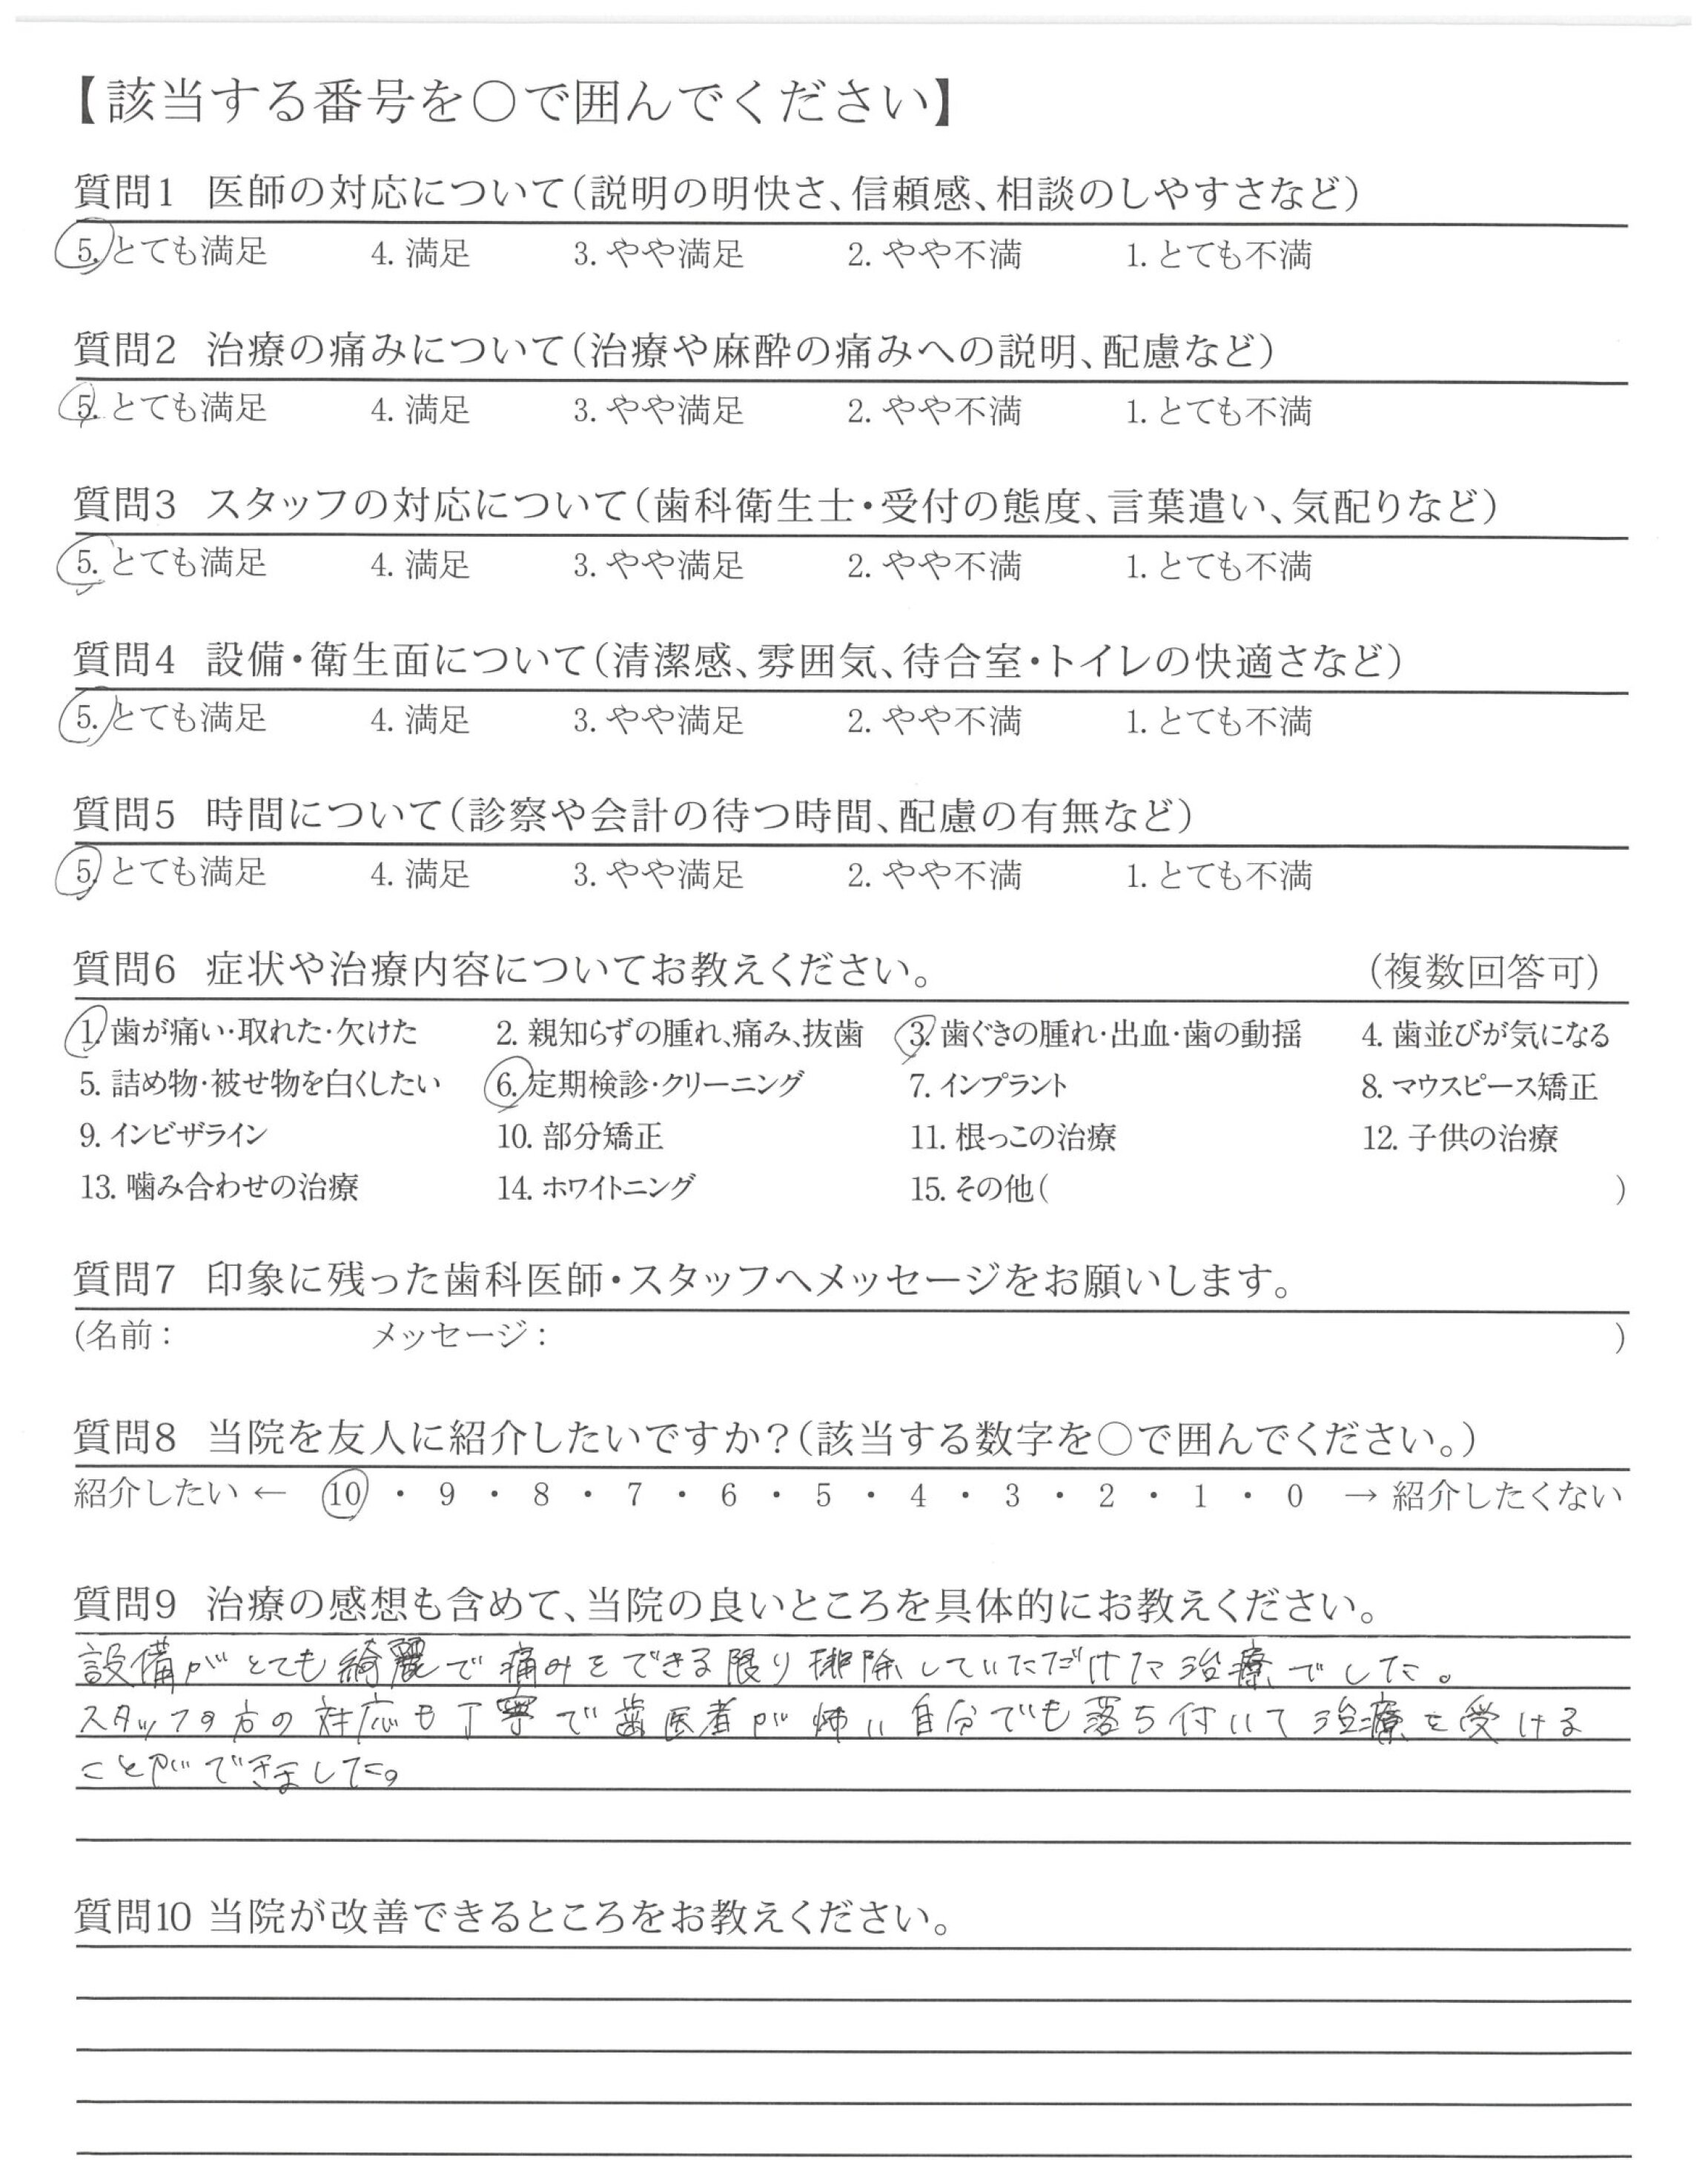 【該当する番号を○で囲んでください】
質問1 医師の対応について(説明の明快さ、信頼感、相談のしやすさなど)
5. とても満足 4. 満足 3. やや満足 2. やや不満 1. とても不満
質問2 治療の痛みについて(治療や麻酔の痛みへの説明、配慮など)
5. とても満足 4. 満足 3. やや満足 2. やや不満 1. とても不満
質問3 スタッフの対応について(歯科衛生士・受付の態度、言葉遣い、気配りなど)
5. とても満足 4. 満足 3. やや満足 2. やや不満 1. とても不満
質問4 設備・衛生面について(清潔感、雰囲気、待合室・トイレの快適さなど)
5. とても満足 4. 満足 3. やや満足 2. やや不満 1. とても不満
質問5 時間について(診察や会計の待つ時間、配慮の有無など)
5. とても満足 4. 満足 3. やや満足 2. やや不満 1. とても不満
質問6 症状や治療内容についてお教えください。 (複数回答可)
1. 歯が痛い・取れた・欠けた 2. 親知らずの腫れ、痛み、抜歯 3. 歯ぐきの腫れ・出血・歯の動揺 4. 歯並びが気になる
5. 詰め物・被せ物を白くしたい 6. 定期検診・クリーニング 7. インプラント 8. マウスピース矯正
9. インビザライン 10. 部分矯正 11. 根っこの治療 12. 子供の治療
13. 噛み合わせの治療 14. ホワイトニング 15. その他( )
質問7 印象に残った歯科医師・スタッフへメッセージをお願いします。
(名前: メッセージ: )
質問8 当院を友人に紹介したいですか?(該当する数字を○で囲んでください。)
紹介したい ← 10 ・ 9 ・ 8 ・ 7 ・ 6 ・ 5 ・ 4 ・ 3 ・ 2 ・ 1 ・ 0 → 紹介したくない
質問9 治療の感想も含めて、当院の良いところを具体的にお教えください。
設備がとても綺麗で痛みをできる限り排除していただけた治療でした。
スタッフの方の対応も丁寧で歯医者が怖い自分でも落ち付いて治療を受ける
ことができました。
質問10 当院が改善できるところをお教えください。